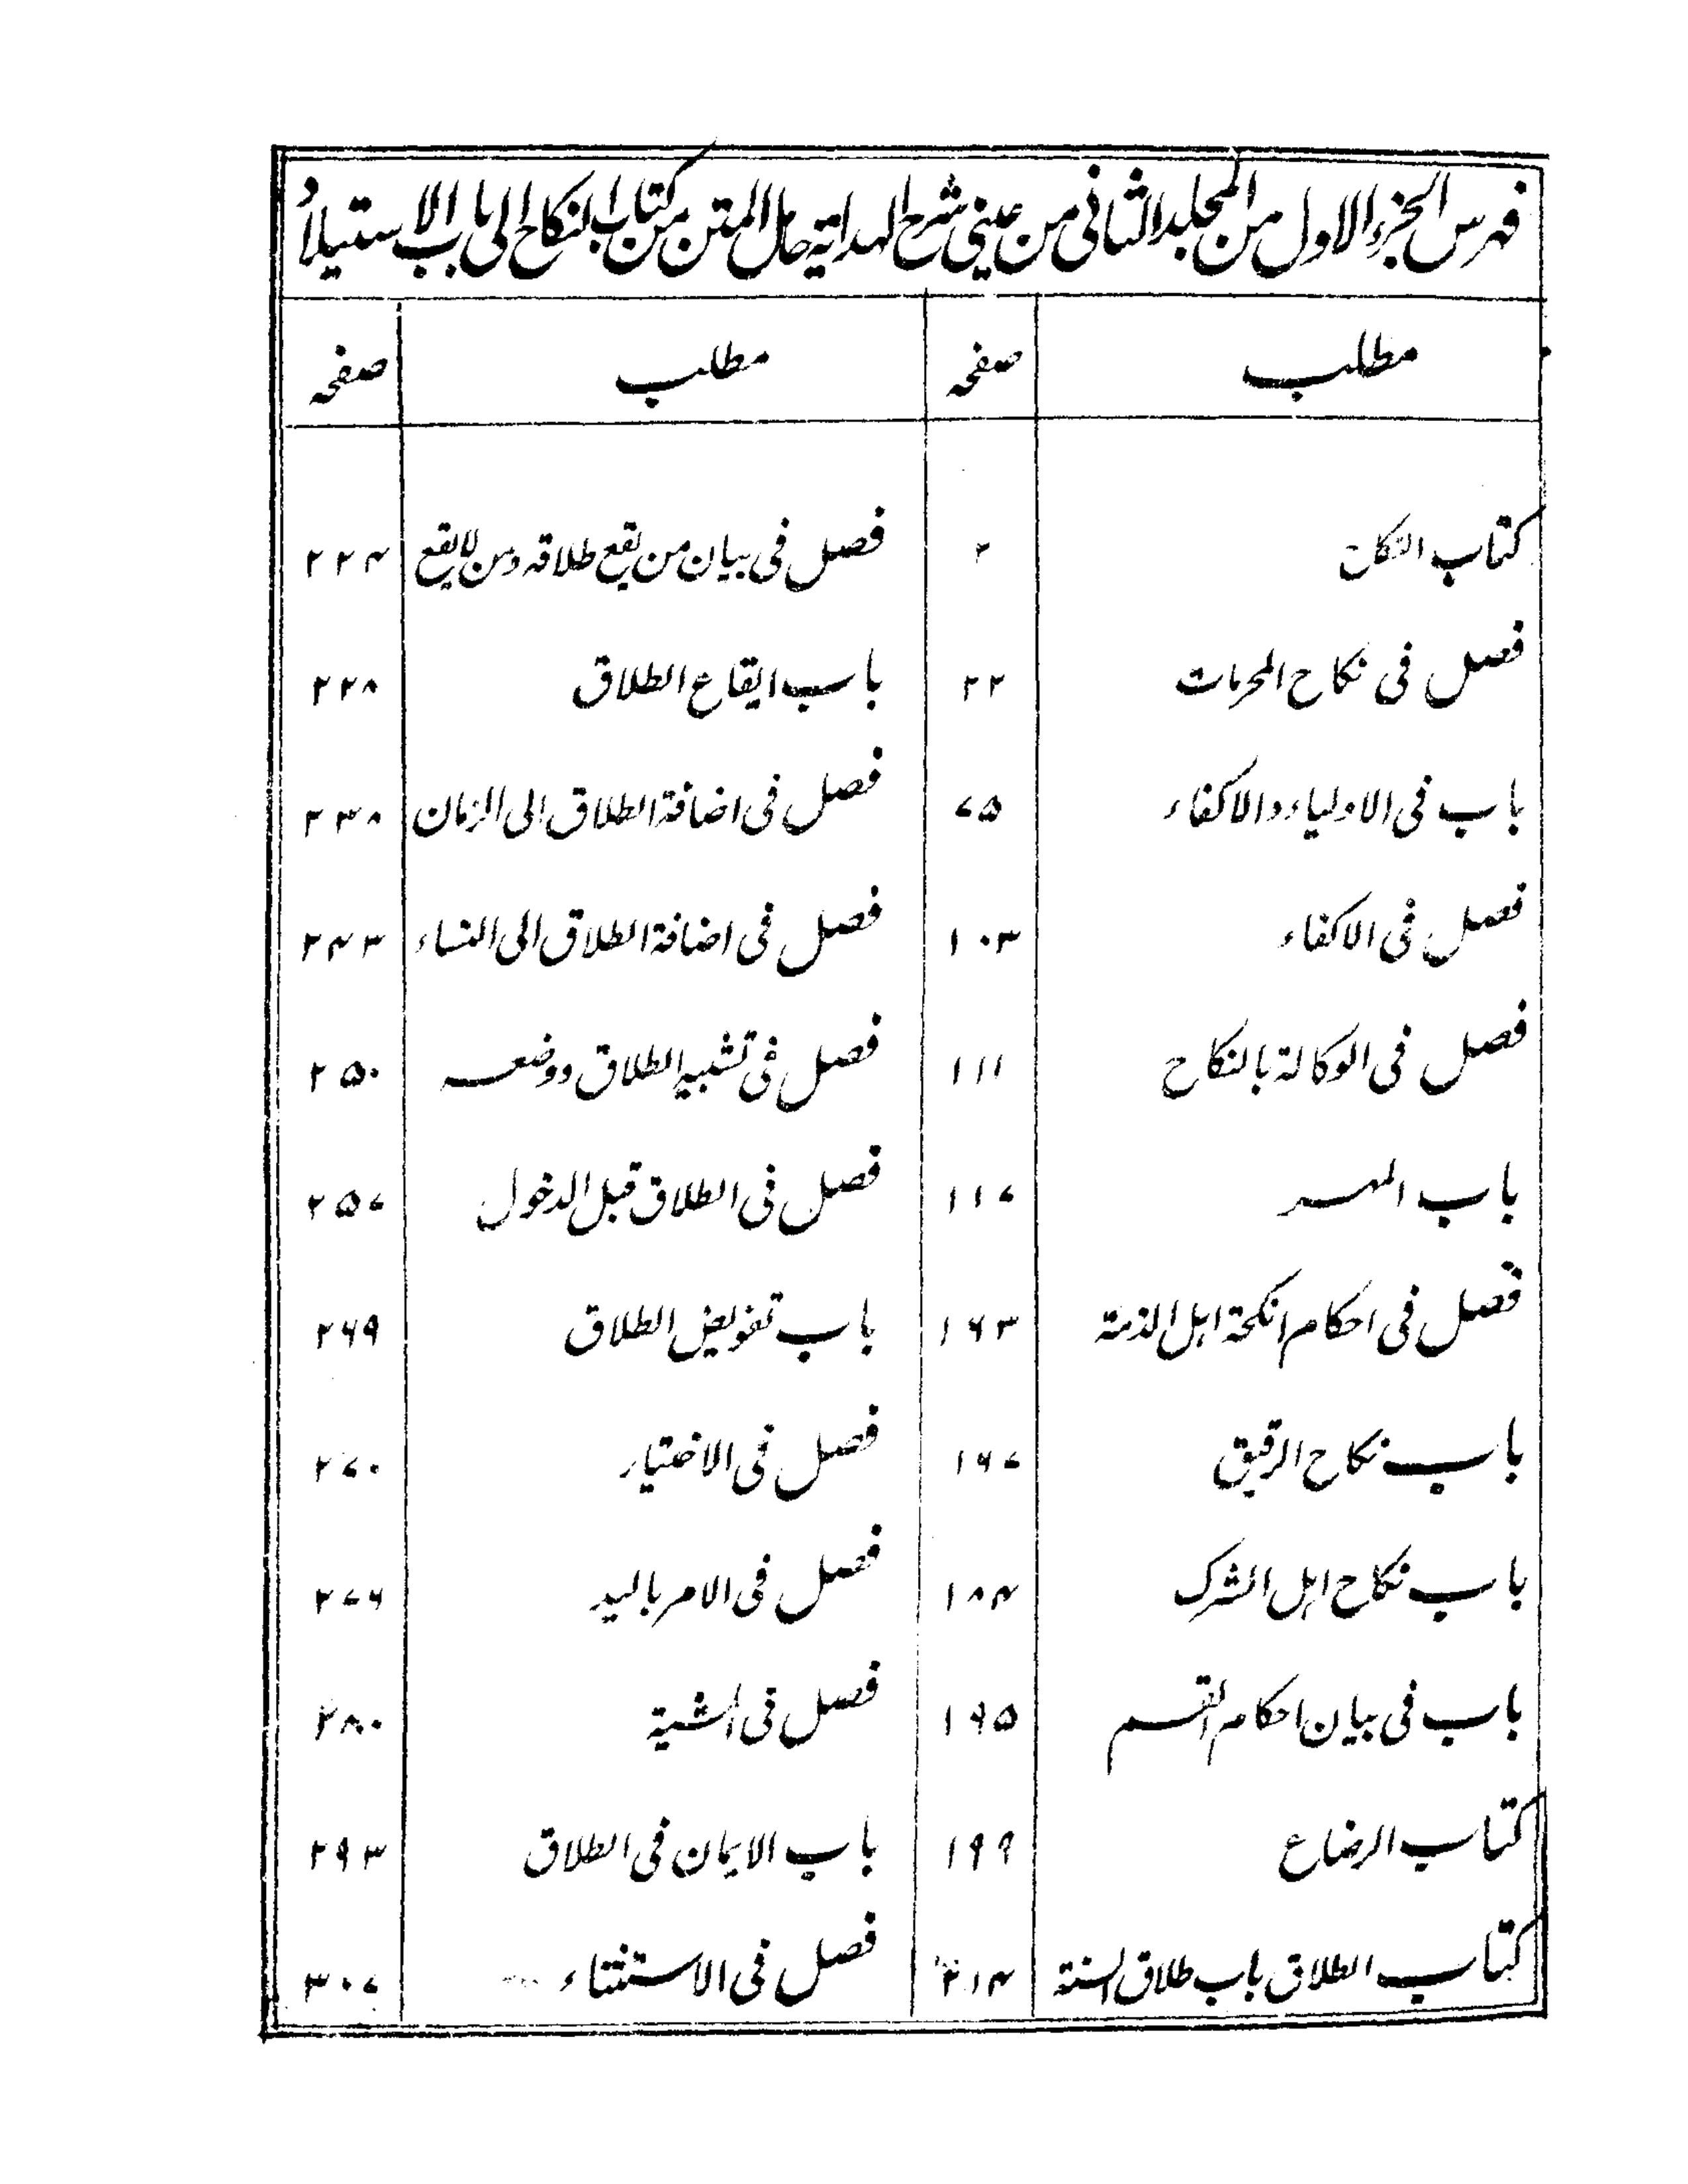 فہرس الجزء الاول من المجلد الثانی من عینی شرح الہدایة حامل المتن من کتاب النکاح الی باب الاستیلاد
مطلب صفحہ مطلب صفحہ
کتاب النکاح ۲ فصل فی بیان من یقع طلاقہ ومن لا یقع ۲۲۴
فصل فی نکاح المحرمات ۲۲ باب ایقاع الطلاق ۲۲۸
باب فی الاولیاء والاکفاء ۷۵ فصل فی اضافة الطلاق الی الزمان ۲۳۸
فصل فی الاکفاء ۱۰۳ فصل فی اضافة الطلاق الی النساء ۲۴۳
فصل فی الوکالة بالنکاح ۱۱۱ فصل فی تشبیہ الطلاق ووضعہ ۲۵۰
باب المہر ۱۱۷ فصل فی الطلاق قبل الدخول ۲۵۷
فصل فی احکام انکحة اہل الذمة ۱۶۳ باب تفویض الطلاق ۲۶۹
باب نکاح الرقیق ۱۶۷ فصل فی الاختیار ۲۷۰
باب نکاح اہل الشرک ۱۸۴ فصل فی الامر بالید ۲۷۶
باب فی بیان احکام القسم ۱۹۵ فصل فی المشیة ۲۸۰
کتاب الرضاع ۱۹۹ باب الایمان فی الطلاق ۲۹۳
کتاب الطلاق باب طلاق السنة ۲۱۴ فصل فی الاستثناء ۳۰۷